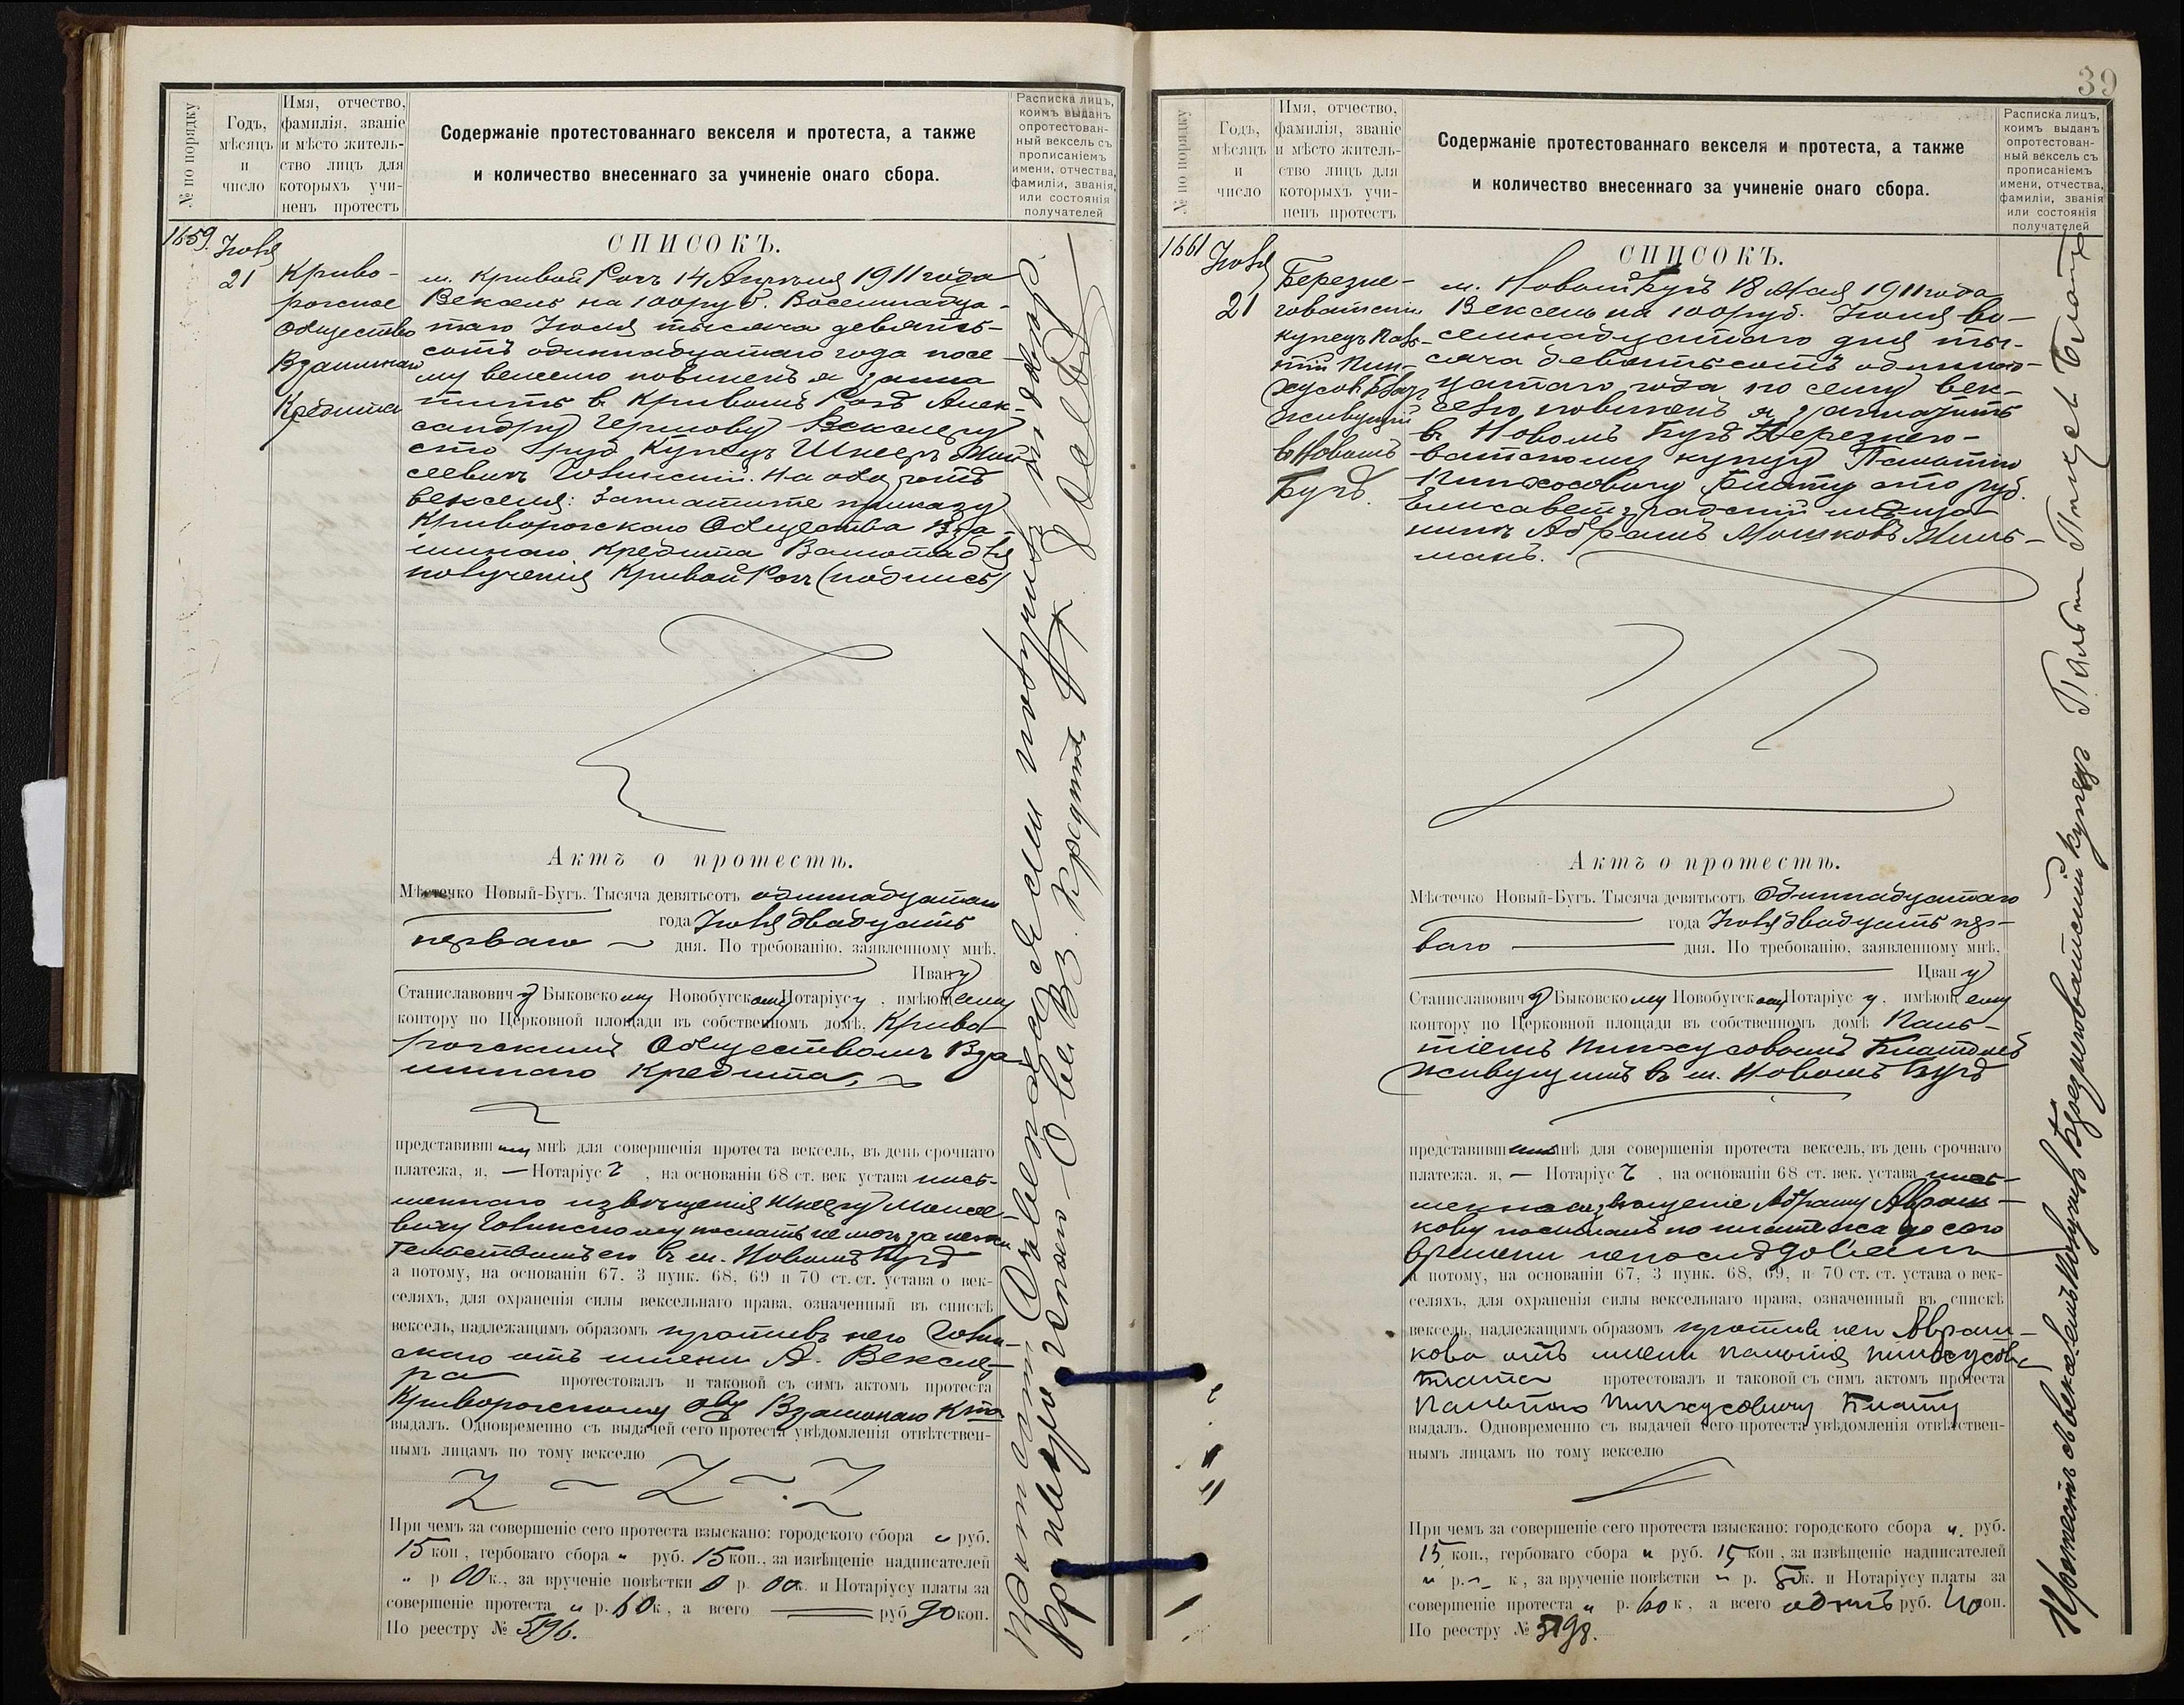 № по порядку
Годъ,
мѣсяцъ
и
число
Имя, отчество,
фамилія, званіе
и мѣсто житель-
ство лицъ для
которыхъ учи-
ненъ протестъ
Содержаніе протестованнаго векселя и протеста, а также
и количество внесеннаго за учиненіе онаго сбора.
Расписка лицъ,
коимъ выданъ
опротестован-
ный вексель съ
прописаніемъ
имени, отчества,
фамиліи, званія,
или состоянія
получателей
1659.
Іюля
21
Криво-
рогское
Общество
Взаимнаго
Кредита
СПИСОКЪ.
м. Кривой Рогъ 14 Апрѣля 1911 года
Вексель на 100 руб. Восемнадца-
таго Іюля тысяча девять-
сотъ одиннадцатаго года по се-
му векселю повиненъ я запла
тить в Кривомъ Рогѣ Алек-
сандру Векслеру
сто руб Купецъ Шнеер Мои
сеевичъ На оборотѣ
векселя: Заплатите приказу
Криворогскаго Общества Вза-
имнаго Кредита Валюта для
получения Кривой Рогъ (подпись)
Актъ о протестѣ.
Мѣстечко Новый-Бугъ. Тысяча девятьсотъ одиннадцатаго
года Іюля двадцать
перваго дня. По требованію, заявленному мнѣ,
Ивану
Станиславовичу Быковскому Новобугскому Нотаріусу, имѣющему
контору по Церковной площади въ собственномъ домѣ, Криво-
рогскимъ Обществомъ Вза
имнаго Кредита,
представившимъ мнѣ для совершенія протеста вексель, въ день срочнаго
платежа, я, — Нотаріусъ, на основаніи 68 ст. век устава пись-
меннаго извѣщенія Шнееру Моисе-
вичу послать не могъ за нежи
тельствомъ его въ м. Новомъ Бугѣ
а потому, на основаніи 67. 3 пунк. 68, 69 и 70 ст. ст. устава о век-
селяхъ, для охраненія силы вексельнаго права, означенный въ спискѣ
вексель, надлежащимъ образомъ противъ него
скаго отъ имени А. Вексле-
ра протестовалъ и таковой съ симъ актомъ протеста
Криворогскому Обу Взаимнаго Кта
выдалъ. Одновременно съ выдачей сего протеста увѣдомленія отвѣтствен-
нымъ лицамъ по тому векселю
При чемъ за совершеніе сего протеста взыскано: городского сбора „ руб.
15 коп., гербоваго сбора „ руб. 15 коп., за извѣщеніе надписателей
„ р 00 к., за врученіе повѣстки 0 р. 00 к. и Нотаріусу платы за
совершеніе протеста „ р. 60 к, а всего руб 90 коп.
По реестру № 5796.
39
№ по порядку
Годъ,
мѣсяцъ
и
число
Имя, отчество,
фамилія, званіе
и мѣсто житель-
ство лицъ для
которыхъ учи-
ненъ протестъ
Содержаніе протестованнаго векселя и протеста, а также
и количество внесеннаго за учиненіе онаго сбора.
Расписка лицъ,
коимъ выданъ
опротестован-
ный вексель съ
прописаніемъ
имени, отчества,
фамиліи, званія
или состоянія
получателей
1661
Іюля
21
Березне-
говатскій
купецъ
живущій
в Новомъ
Бугѣ.
СПИСОКЪ.
м. Новый Бугъ 18 Мая 1911 года
Вексель на 100 руб. Іюля во-
семнадцатаго дня ты-
сяча девятьсотъ одиннад-
цатаго года по сему век-
селю повиненъ я заплатить
в Новомъ Бугѣ Березнего-
ватскому купцу
Пинхосовичу Блату сто руб.
Елисаветградскій мѣща-
нинъ Абрамъ Мошковъ Миль-
манъ.
Актъ о протестѣ.
Мѣстечко Новый-Бугъ. Тысяча девятьсотъ Одиннадцатаго
года Іюля двадцать пер-
ваго дня. По требованію, заявленному мнѣ,
Ивану
Станиславовичу Быковскому Новобугскому Нотаріусу, имѣющему
контору по Церковной площади въ собственномъ домѣ
Пинхусовымъ Блатомъ
живущимъ в м. Новомъ Бугѣ
представившимъ мнѣ для совершенія протеста вексель, въ день срочнаго
платежа. я, — Нотаріусъ, на основаніи 68 ст. век. устава пись-
менное извѣщеніе Абраму
кову посылалъ но платежа до сего
времени непослѣдовало
а потому, на основаніи 67, 3 пунк. 68, 69, и 70 ст. ст. устава о век-
селяхъ, для охраненія силы вексельнаго права, означенный въ спискѣ
вексель, надлежащимъ образомъ противъ него
кова отъ имени
Блата протестовалъ и таковой съ симъ актомъ протеста
Пинхусовичу Блату
выдалъ. Одновременно съ выдачей сего протеста увѣдомленія отвѣтствен-
нымъ лицамъ по тому векселю
При чемъ за совершеніе сего протеста взыскано: городского сбора „. руб.
15 коп., гербоваго сбора „ руб. 15 коп, за извѣщеніе надписателей
„ р. к, за врученіе повѣстки „ р. 50 к. и Нотаріусу платы за
совершеніе протеста „ р. 60 к, а всего одинъ руб. 40 коп.
По реестру № 5798.
Протестъ съ векселемъ получилъ Березнеговатскій купецъ